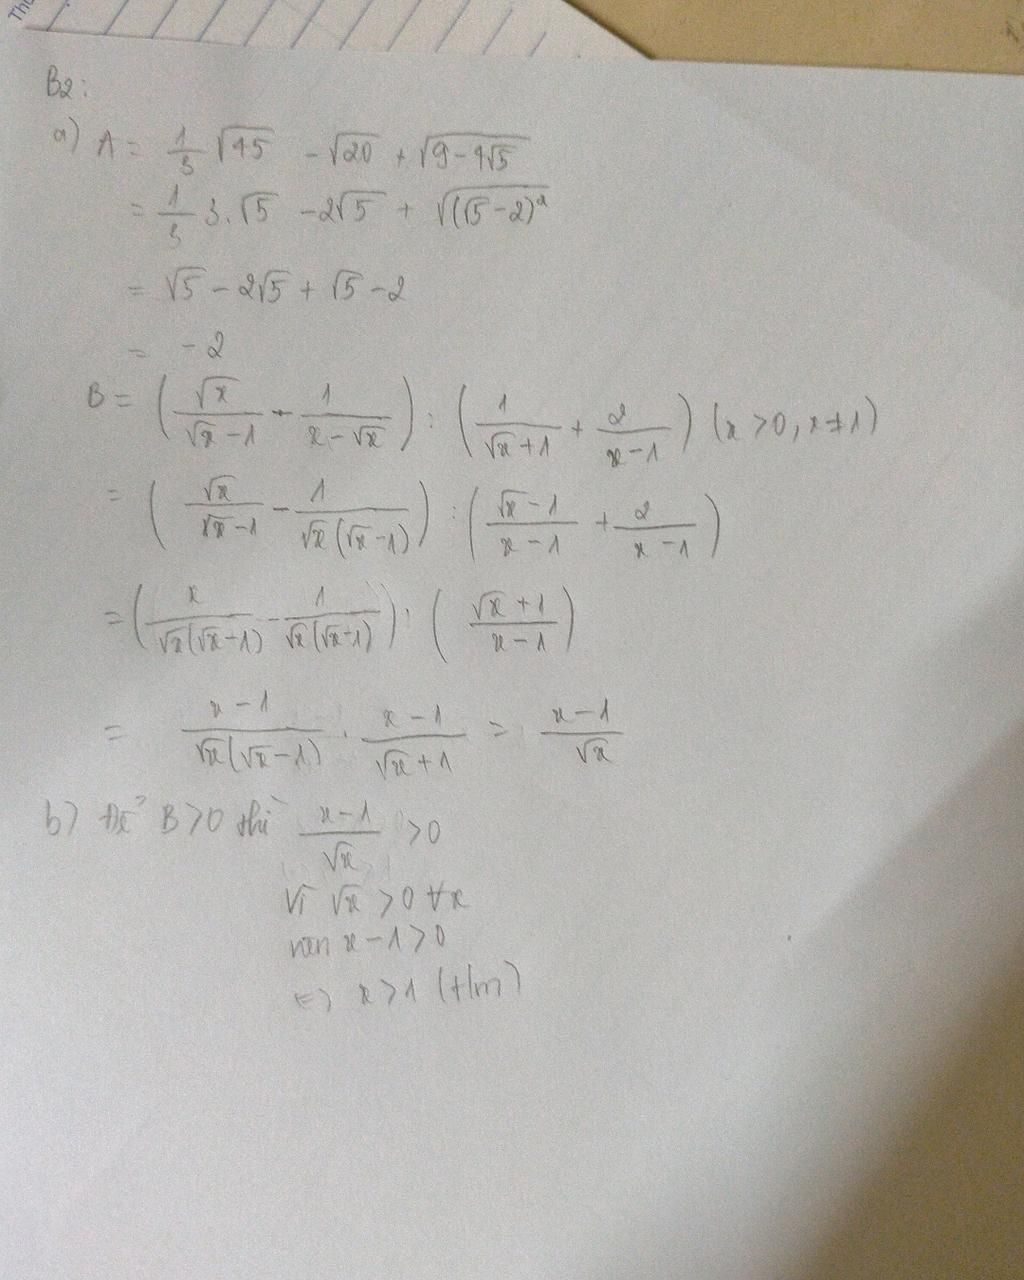 Th
B2:
a) A = \frac{1}{3} √45 - √20 + √(9 - 4√5)
= \frac{1}{3} 3.√5 - 2√5 + √((√5 - 2)²)
= √5 - 2√5 + √5 - 2
= - 2
B = (\frac{√x}{√x - 1} - \frac{1}{x - √x}) : (\frac{1}{√x + 1} + \frac{2}{x - 1}) (x > 0, x ≠ 1)
= (\frac{√x}{√x - 1} - \frac{1}{√x(√x - 1)}) : (\frac{√x - 1}{x - 1} + \frac{2}{x - 1})
= (\frac{x}{√x(√x - 1)} - \frac{1}{√x(√x - 1)}) : (\frac{√x + 1}{x - 1})
= \frac{x - 1}{√x(√x - 1)} . \frac{x - 1}{√x + 1} = \frac{x - 1}{√x}
b) Để B > 0 thì \frac{x - 1}{√x} > 0
Vì √x > 0 ∀x
nên x - 1 > 0
⇔ x > 1 (t/m)